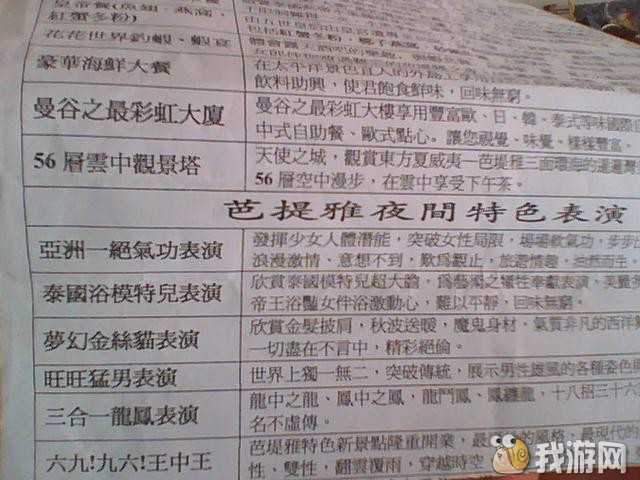 皇帝餐(魚翅、燕窩、
紅蟹冬粉)
花花世界釣蝦、蝦宴
豪華海鮮大餐
飲料助興，使君飽食鮮味，回味無窮。
曼谷之最彩虹大廈
曼谷之最彩虹大樓享用豐富歐、日、韓、泰式等味國際
中式自助餐、歐式點心。讓您視覺、味覺，樣樣豐富。
56層雲中觀景塔
天使之城，觀賞東方夏威夷一芭堤雅三面環海的
56層空中漫步，在雲中享受下午茶。
芭提雅夜間特色表演
亞洲一絕氣功表演
發揮少女人體潛能，突破女性局限，場場軟氣功，步步
浪漫激情、意想不到，歎為觀止，旅遊情趣，油然而生
泰國浴模特兒表演
欣賞泰國模特兒超大膽，為藝術之犧牲奉獻表演，美豔
帝王浴豔女伴浴激動心，難以平靜，回味無窮。
夢幻金絲貓表演
欣賞金髮披肩，秋波送暖，魔鬼身材，氣質非凡的西洋
一切盡在不言中，精彩絕倫。
旺旺猛男表演
世界上獨一無二，突破傳統，展示男性雄風的各種姿色
三合一龍鳳表演
龍中之龍、鳳中之鳳，龍鬥鳳、鳳纏龍，十八招三十六
名不虛傳。
六九!九六!王中王
芭堤雅特色新景點隆重開業，最
性、雙性，翻雲覆雨，穿越時空
我游网